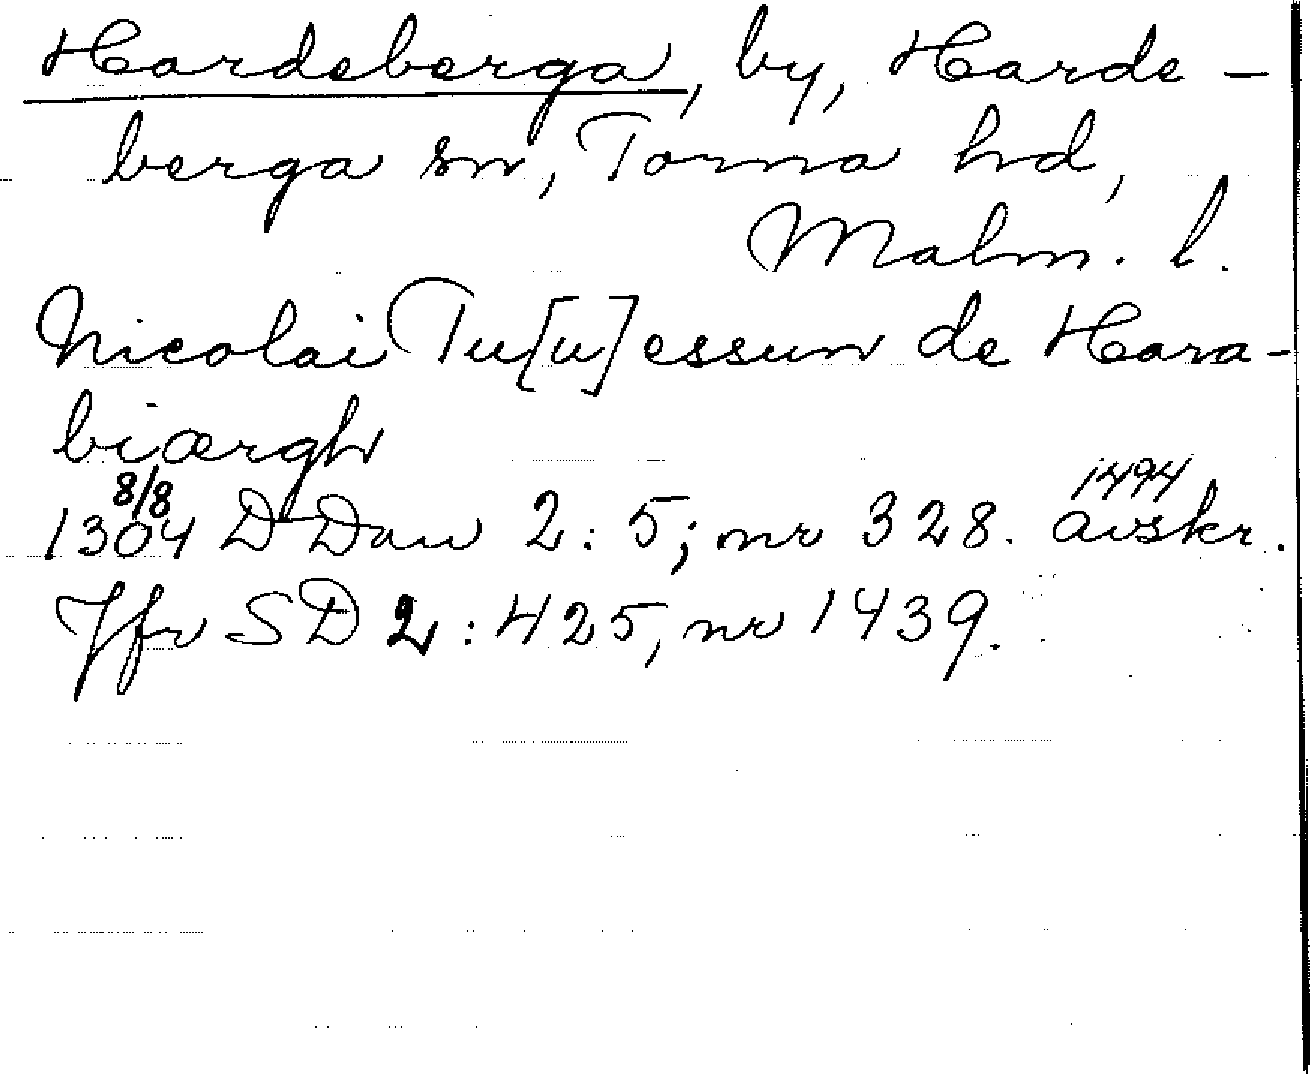 Hardeberga, by, Harde-
berga sn, Torna hd,
Malm. l.
Nicolai Tu[u]essun de Hara-
biærgh
8/8 1494
1304 DDan 2:5; nr 328. avskr.
Jfr SD 2:425, nr 1439.